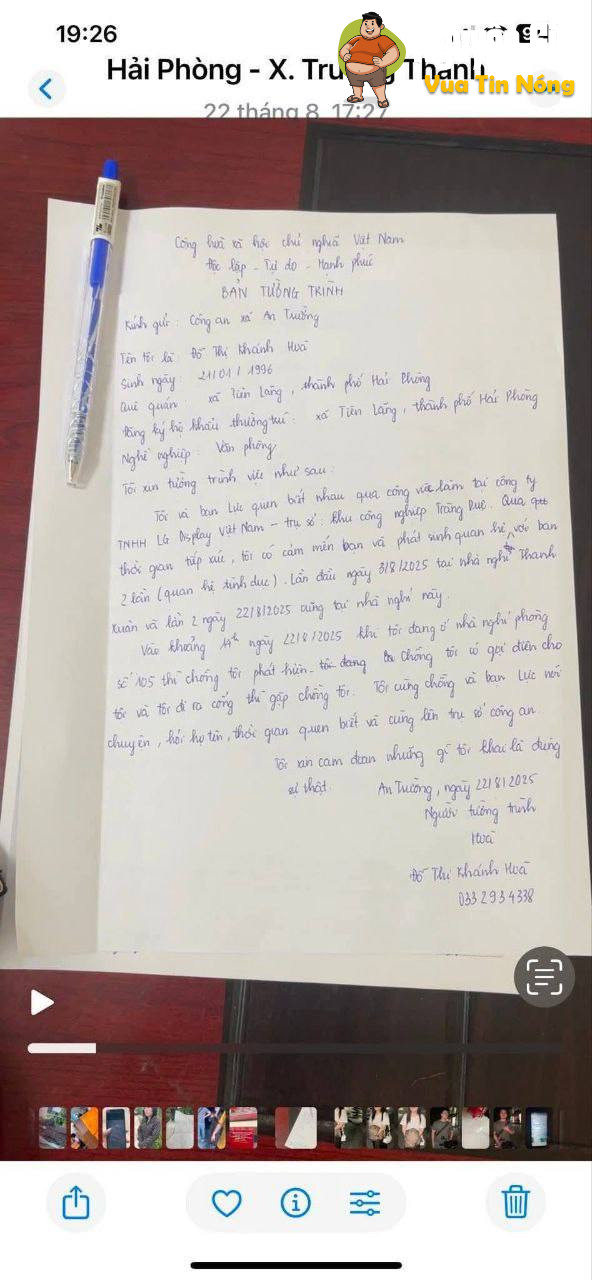 19:26
Hải Phòng - X. Trường Thành
Vua Tin Nóng
22 tháng 8 17:27
Cộng hoà xã hội chủ nghĩa Việt Nam
Độc lập - Tự do - Hạnh phúc
BẢN TƯỜNG TRÌNH
Kính gửi: Công an xã An Trường
Tên tôi là: Đỗ Thị Khánh Hoà
Sinh ngày: 21/01/1996
Quê quán: xã Tiên Lãng, thành phố Hải Phòng
Đăng ký hộ khẩu thường trú: xã Tiên Lãng, thành phố Hải Phòng
Nghề nghiệp: Văn phòng
Tôi xin tường trình việc như sau:
Tôi và bạn Lực quen biết nhau qua công việc làm tại công ty
TNHH LG Display Việt Nam - trụ sở: khu công nghiệp Tràng Duệ. Qua
thời gian tiếp xúc, tôi có cảm mến bạn và phát sinh quan hệ với bạn
2 lần (quan hệ tình dục). Lần đầu ngày 3/8/2025 tại nhà nghỉ Thanh
Xuân và lần 2 ngày 22/8/2025 cũng tại nhà nghỉ này.
Vào khoảng 14h ngày 22/8/2025 khi tôi đang ở nhà nghỉ phòng
số 105 thì chồng tôi phát hiện. Chồng tôi có gọi điện cho
tôi và tôi đi ra cổng thì gặp chồng tôi. Tôi cùng chồng và bạn Lực nói
chuyện, hỏi họ tên, thời gian quen biết và cùng lên trụ sở công an.
Tôi xin cam đoan những gì tôi khai là đúng
sự thật.
An Trường, ngày 22/8/2025
Người tường trình
Hoà
Đỗ Thị Khánh Hoà
033 293 4338